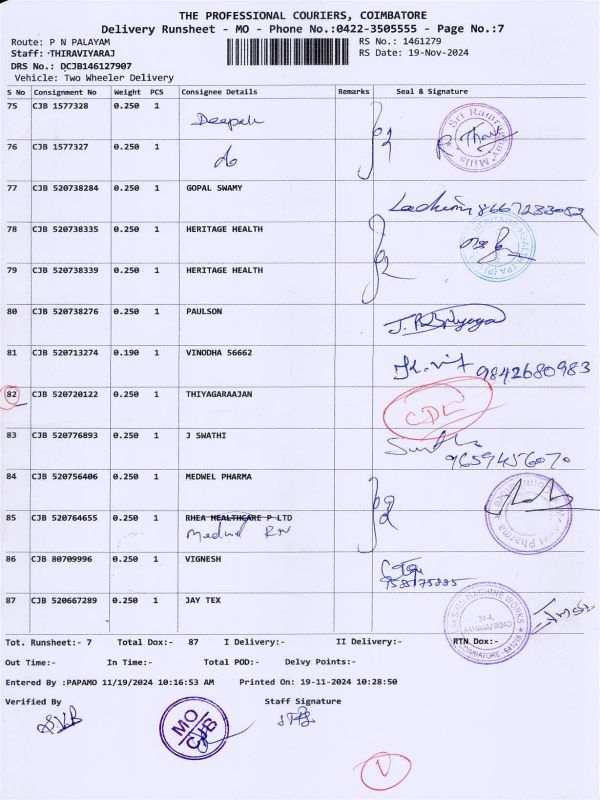 THE PROFESSIONAL COURIERS, COIMBATORE
Delivery Runsheet - MO - Phone No.:0422-3505555 - Page No.:7
Route: P N PALAYAM RS No.: 1461279
Staff: THIRAVIYARAJ RS Date: 19-Nov-2024
DRS No.: DCJB146127907
Vehicle: Two Wheeler Delivery
S No Consignment No Weight PCS Consignee Details Remarks Seal & Signature
75 CJB 1577328 0.250 1 Deepak
76 CJB 1577327 0.250 1 do
77 CJB 520738284 0.250 1 GOPAL SWAMY 8667233052
78 CJB 520738335 0.250 1 HERITAGE HEALTH
79 CJB 520738339 0.250 1 HERITAGE HEALTH
80 CJB 520738276 0.250 1 PAULSON
81 CJB 520713274 0.190 1 VINODHA 56662 9842680983
82 CJB 520720122 0.250 1 THIYAGARAAJAN CDL
83 CJB 520776893 0.250 1 J SWATHI 9659456070
84 CJB 520756406 0.250 1 MEDWEL PHARMA
85 CJB 520764655 0.250 1 RHEA HEALTHCARE P LTD
86 CJB 80709996 0.250 1 VIGNESH
87 CJB 520667289 0.250 1 JAY TEX
Tot. Runsheet:- 7 Total Dox:- 87 I Delivery:- II Delivery:- RTN Dox:-
Out Time:- In Time:- Total POD:- Delvy Points:-
Entered By :PAPAMO 11/19/2024 10:16:53 AM Printed On: 19-11-2024 10:28:50
Verified By Staff Signature
MO
CJB